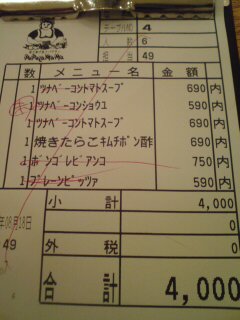 PaPaMaMa
テーブルNO 4
人数 6
担当 49
数 メニュー名 金額
1 ツナベーコントマトスープ 690内
1 ツナベーコンショウユ 590内
1 ツナベーコントマトスープ 690内
1 焼きたらこキムチポン酢 690内
1 ボンゴレビアンコ 750内
1 プレーンピッツァ 590内
小計 4,000
0
年08月18日
49 外税 0
合計 4,000